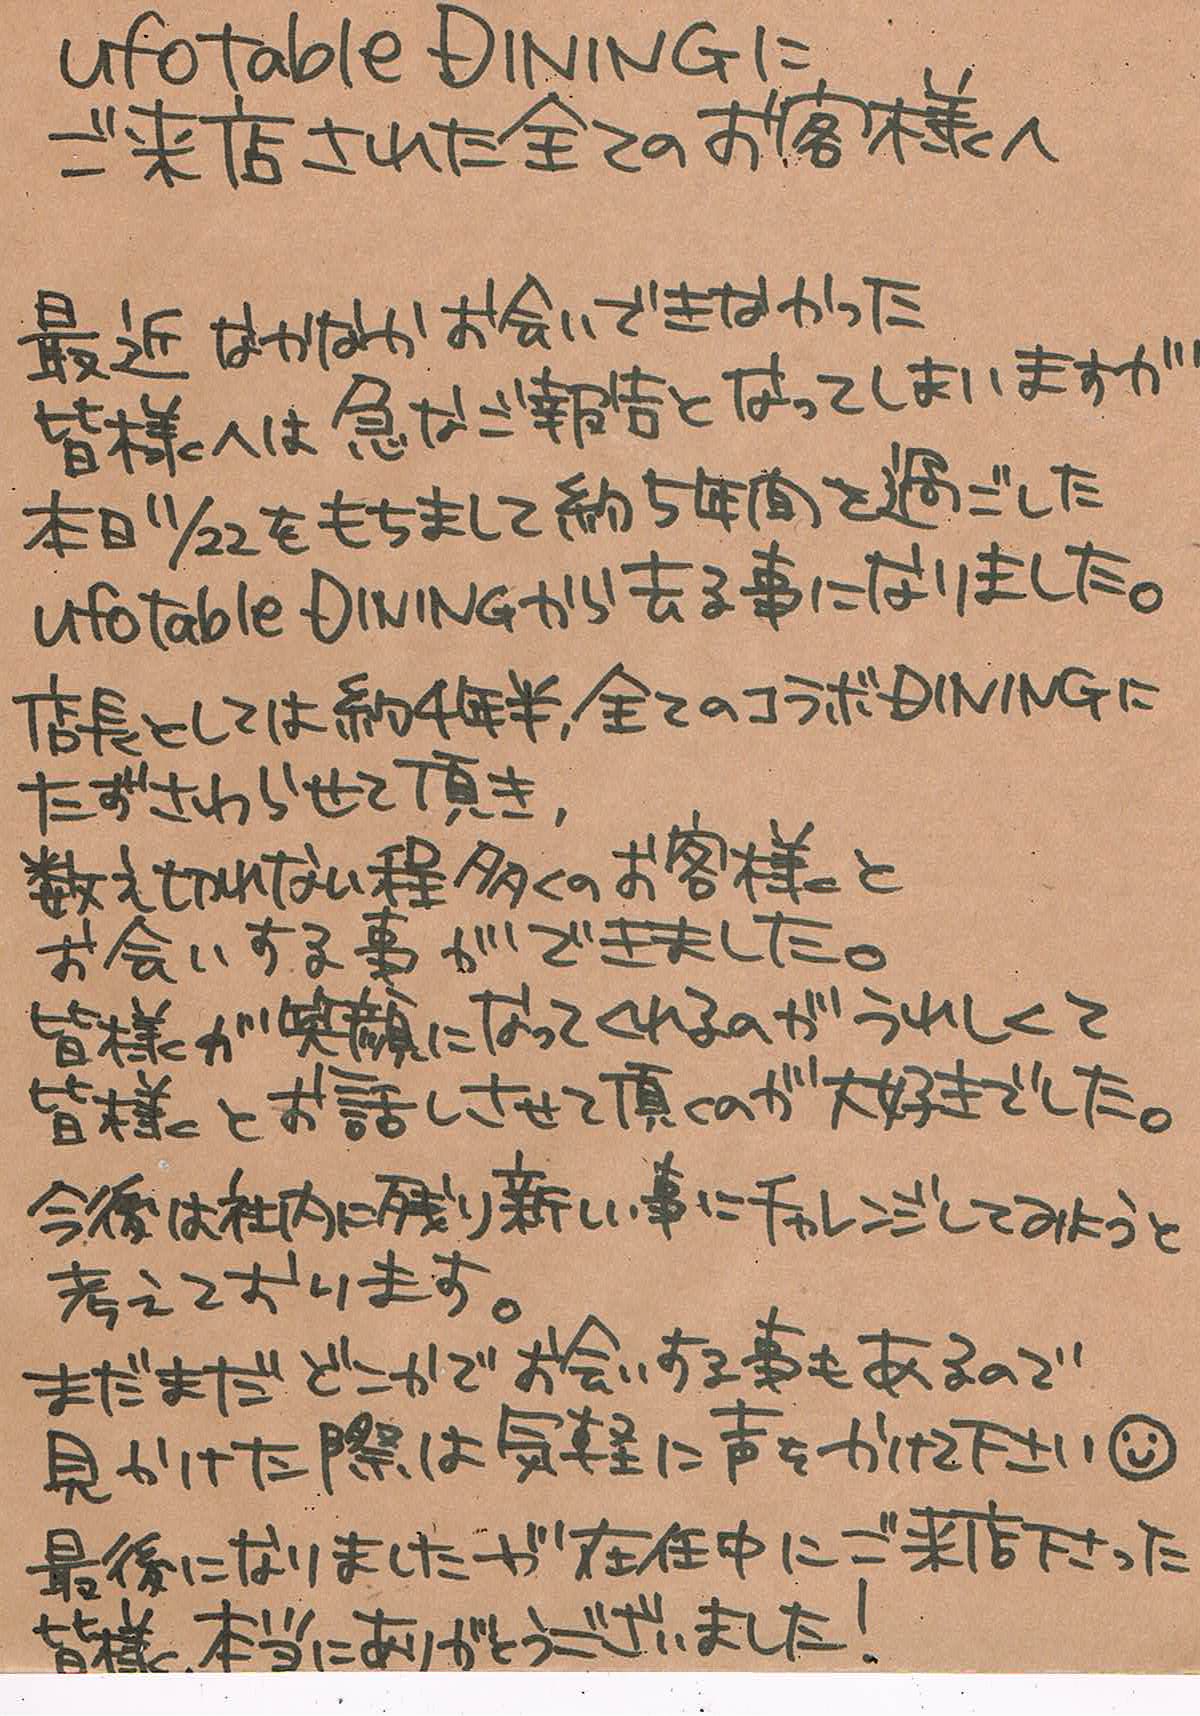 ufotable DININGに
ご来店された全てのお客様へ
最近なかなかお会いできなかった
皆様へは急なご報告となってしまいますが
本日11/22をもちまして約5年間を過ごした
ufotable DININGから去る事になりました。
店長としては約4年半,全てのコラボDININGに
たずさわらせて頂き,
数え切れない程多くのお客様と
お会いする事ができました。
皆様が笑顔になってくれるのがうれしくて
皆様とお話しさせて頂くのが大好きでした。
今後は社内に残り新しい事にチャレンジしてみようと
考えております。
まだまだどこかでお会いする事もあるので
見かけた際は気軽に声をかけて下さい
最後になりましたが在任中にご来店下さった
皆様、本当にありがとうございました!